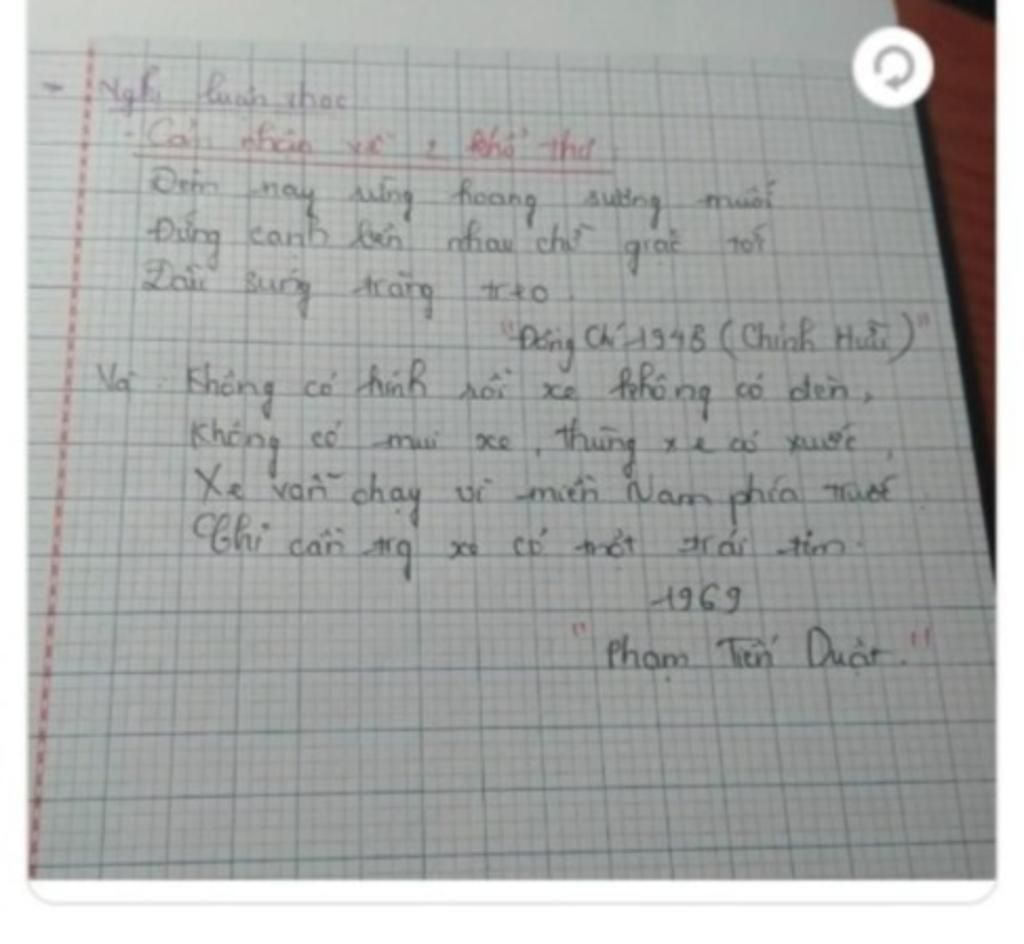 - Nghị luận văn học
- Cảm nhận về 2 khổ thơ
Đêm nay rừng hoang sương muối
Đứng cạnh bên nhau chờ giặc tới
Đầu súng trăng treo.
"Đồng Chí 1948 (Chính Hữu)"
Và Không có kính rồi xe không có đèn,
Không có mui xe, thùng xe có xước,
Xe vẫn chạy vì miền Nam phía trước
Chỉ cần trg xe có một trái tim.
1969
"Phạm Tiến Duật."